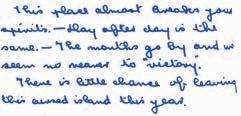 This place almost breaks your
spirits. — day after day is the
same. — The months go by and we
seem no nearer to "victory".
There is little chance of leaving
this cursed island this year.